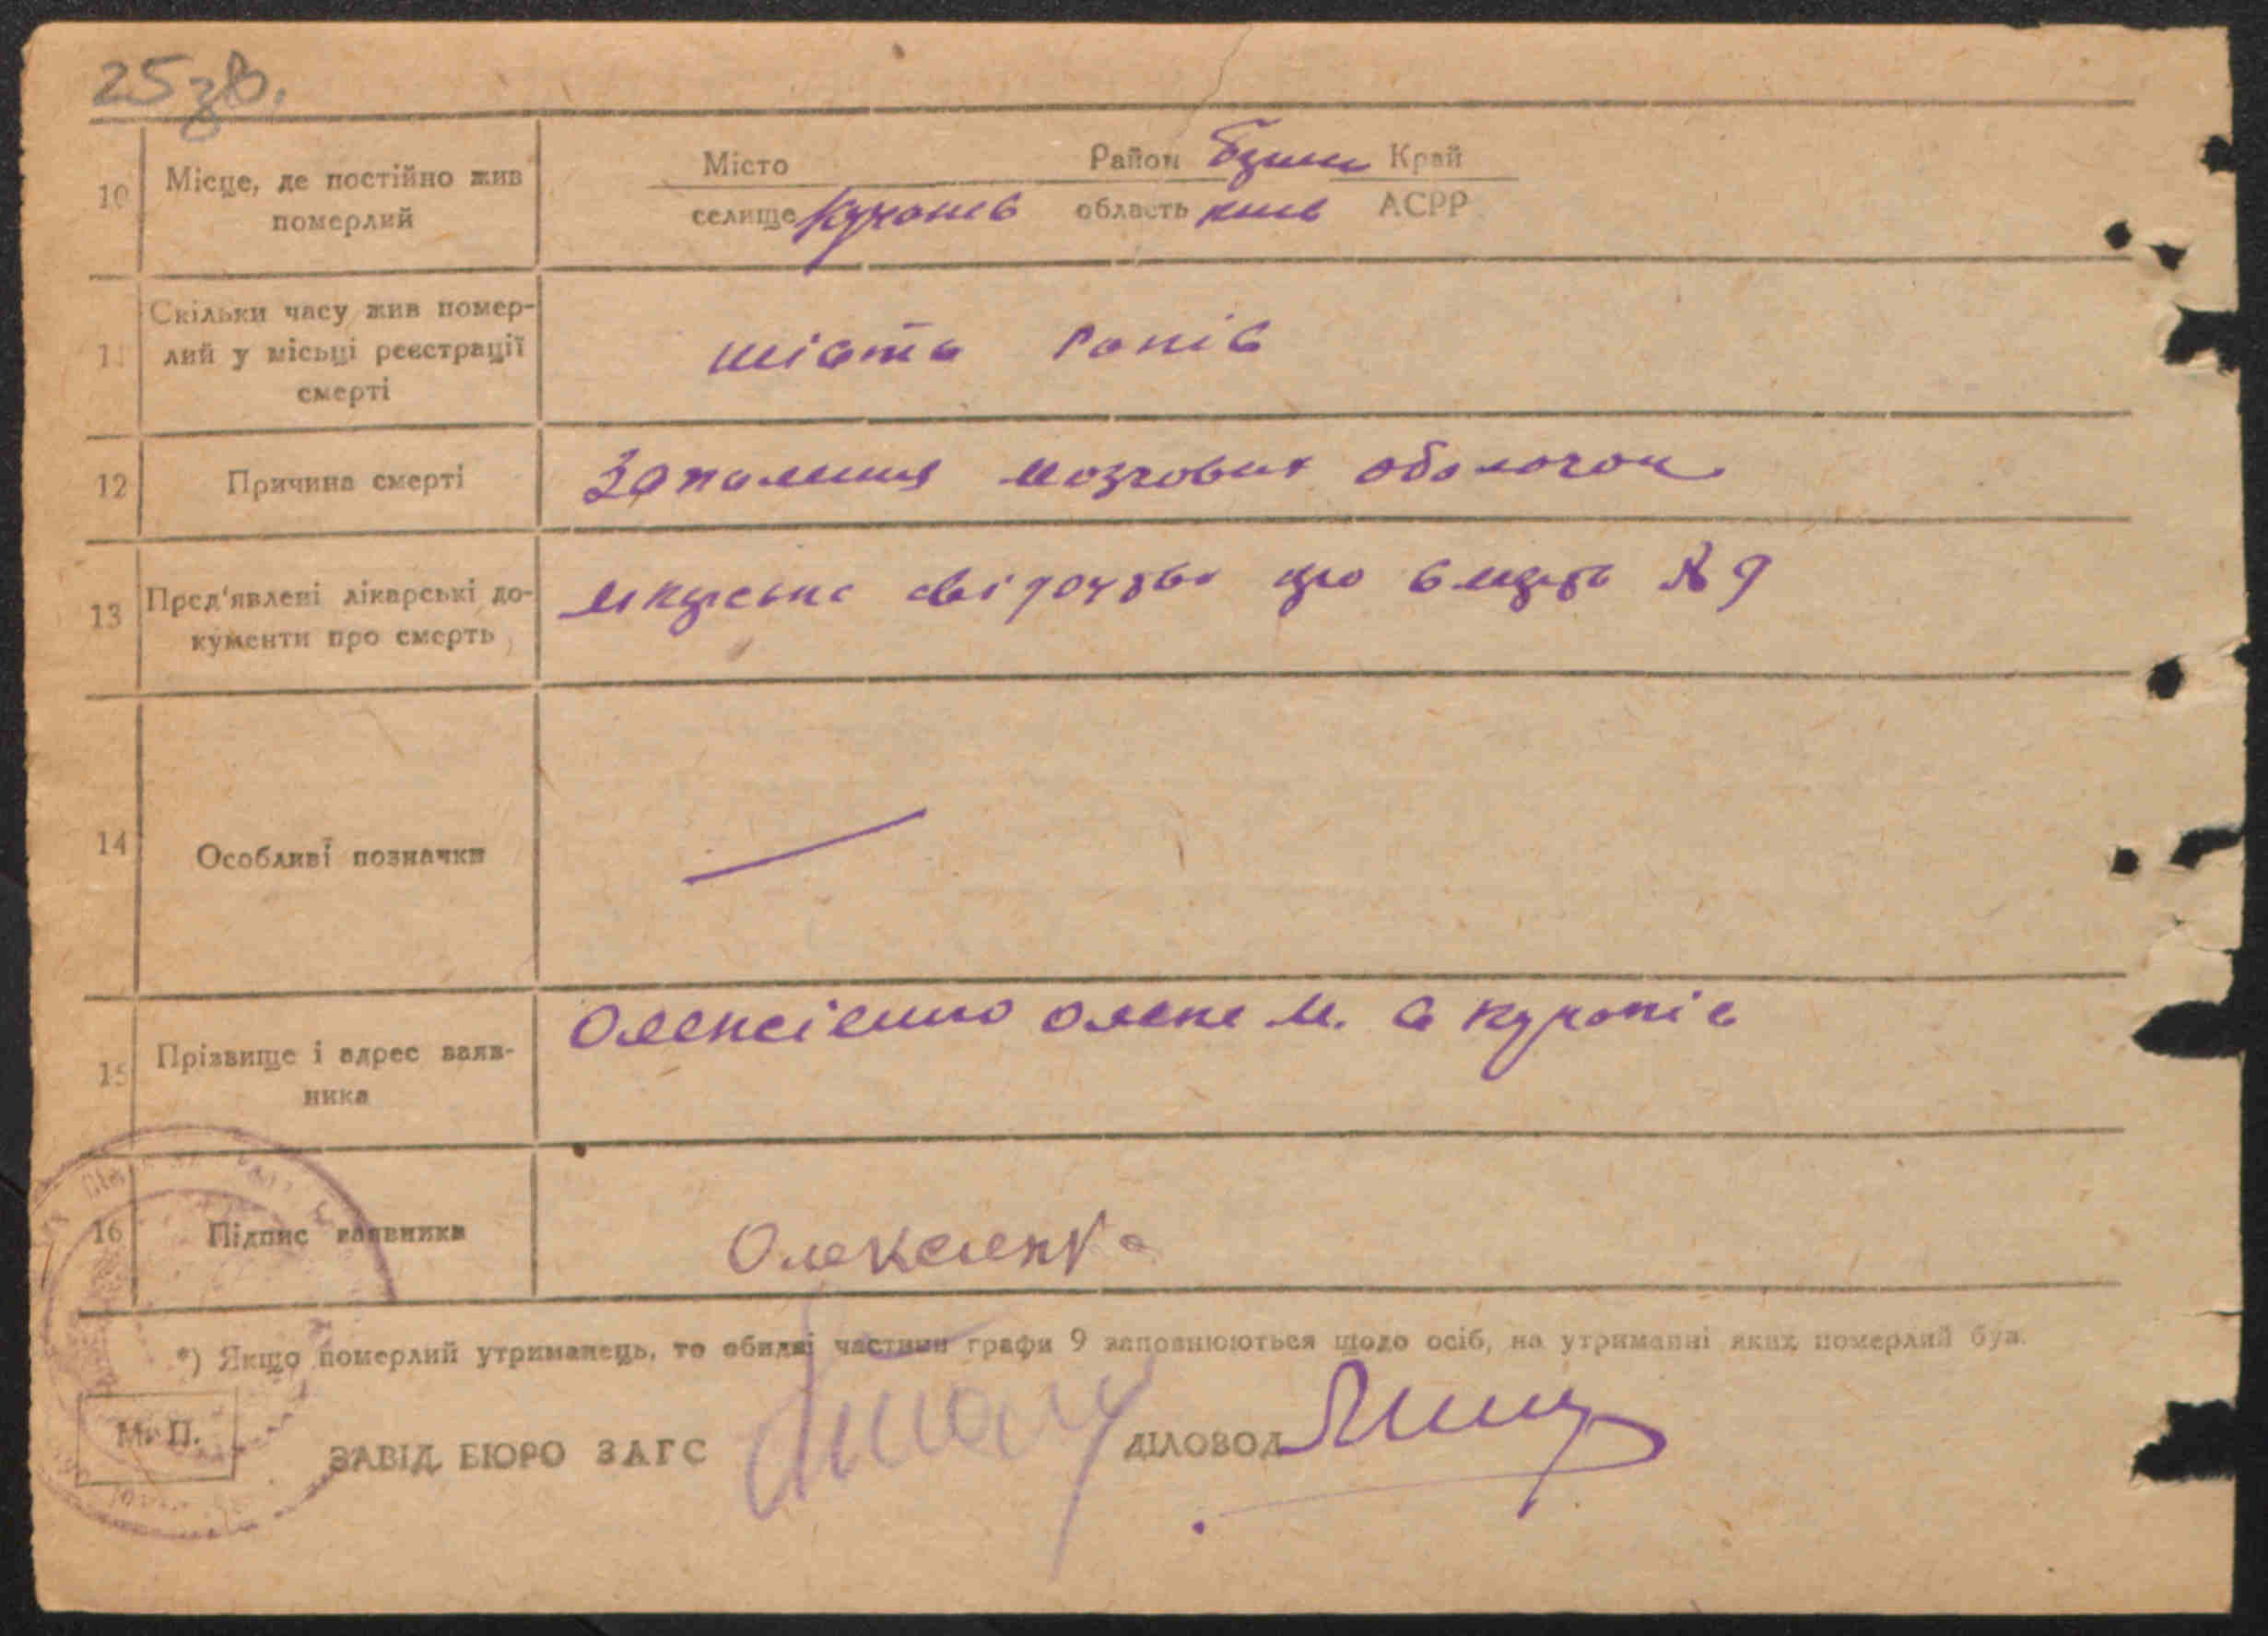 25зв.
10 Місце, де постійно жив померлий
Місто Район Край
селище область київ АСРР
11 Скільки часу жив помер-
лий у місьці реєстрації
смерті
шість років
12 Причина смерті
Запалення мозгових оболочок
13 Пред'явлені лікарські до-
кументи про смерть
що №9
14 Особливі позначки
—
15 Прізвище і адрес заяв-
ника
Олексієнко Олена М.
16 Підпис заявника
Олексієнко
*) Якщо померлий утриманець, то обидві частини графи 9 заповнюються щодо осіб, на утриманні яких померлий був.
М. П.
ЗАВІД. БЮРО ЗАГС
ДІЛОВОД